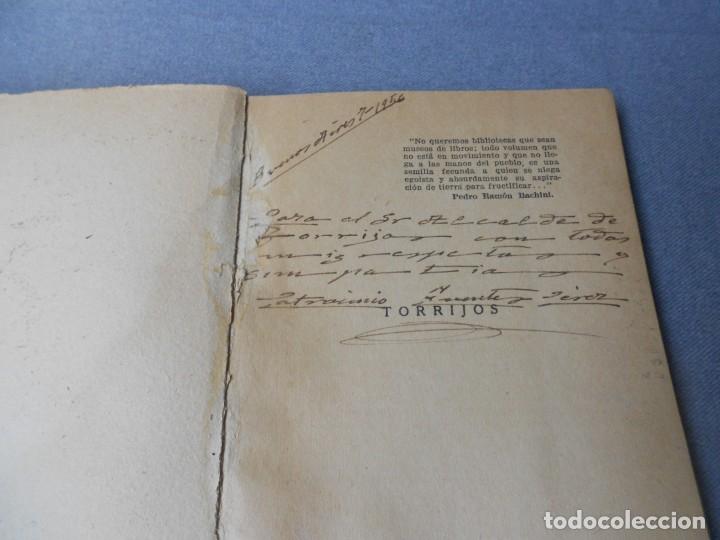 Buenos Aires 1956
"No queremos bibliotecas que sean
museos de libros; todo volumen que
no está en movimiento y que no llega
a las manos del pueblo, es una
semilla fecunda a quien se niega
egoista y absurdamente su aspira-
ción de tierra para fructificar..."
Pedro Ramón Bachini.
Para el Sr Alcalde de
Torrijos con todos
mis respetos y
simpatia
Patrocinio Fuentes Pérez
TORRIJOS
todocoleccion
todocoleccion.net